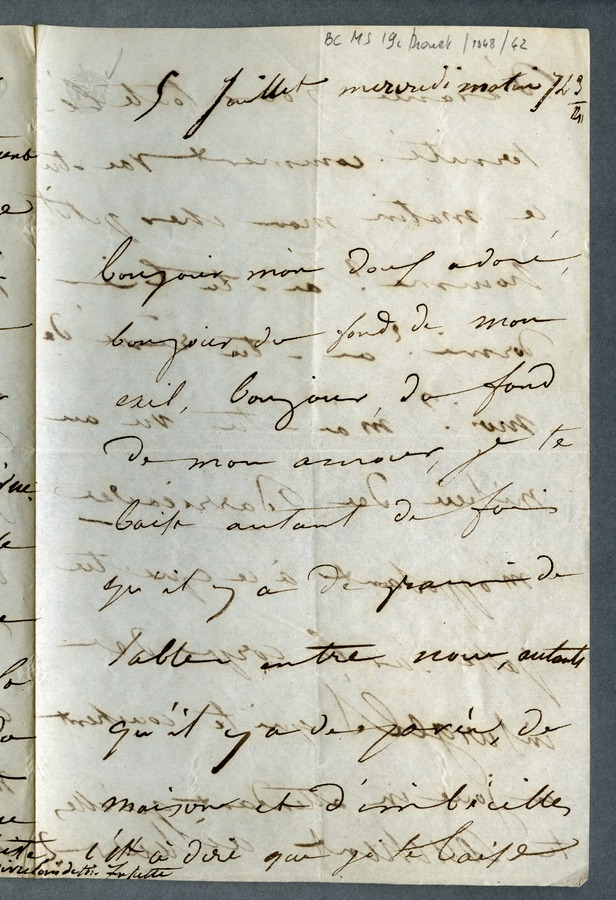 BC MS 19c Drouet /1848/42
5 Juillet mercredi matin 7h 3/4
bonjour, mon doux adoré,
bonjour du fond de mon
exil, bonjour du fond
de mon amour, je te
baise autant de fois
qu'il y a de grains de
sable entre nous, autants
qu'il y a de pavés de
maisons et d'imbécilles
c'est à dire que je te baise
Juliette